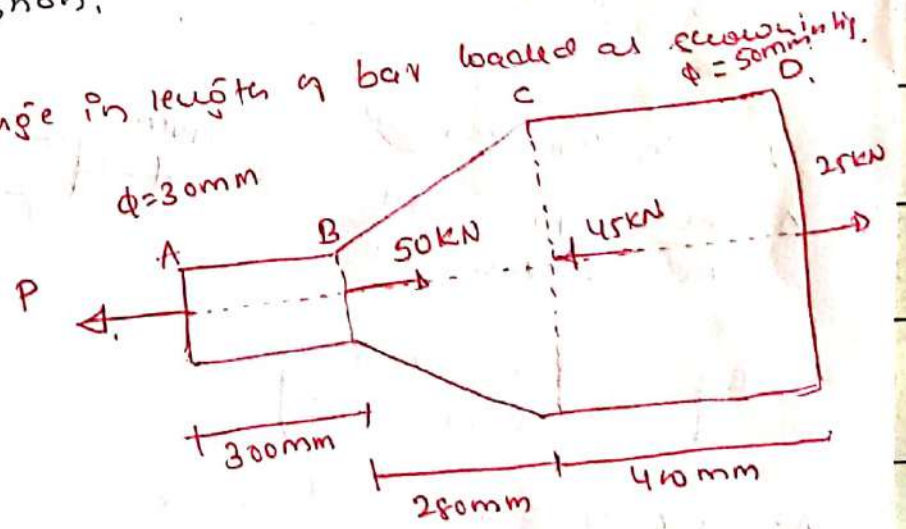 nge in length of bar loaded as shown in fig.
ϕ = 50mm
C
D.
ϕ=30mm
25KN
B
50KN
45KN
A
P
300mm
280mm